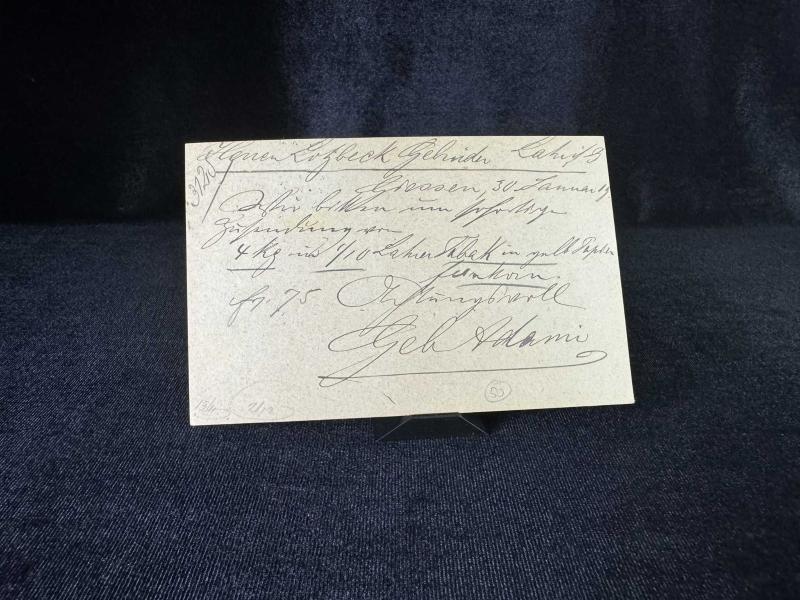 Herren Lotzbeck Gebrüder Lahr i/B
3220
Giessen, 30 Januar 19
Wir bitten um sofortige
Zusendung von
4 Kg in 1/10 Lahrer Tabak in gelb Papier
fr. 75 Achtungsvoll
Geb Adami
50